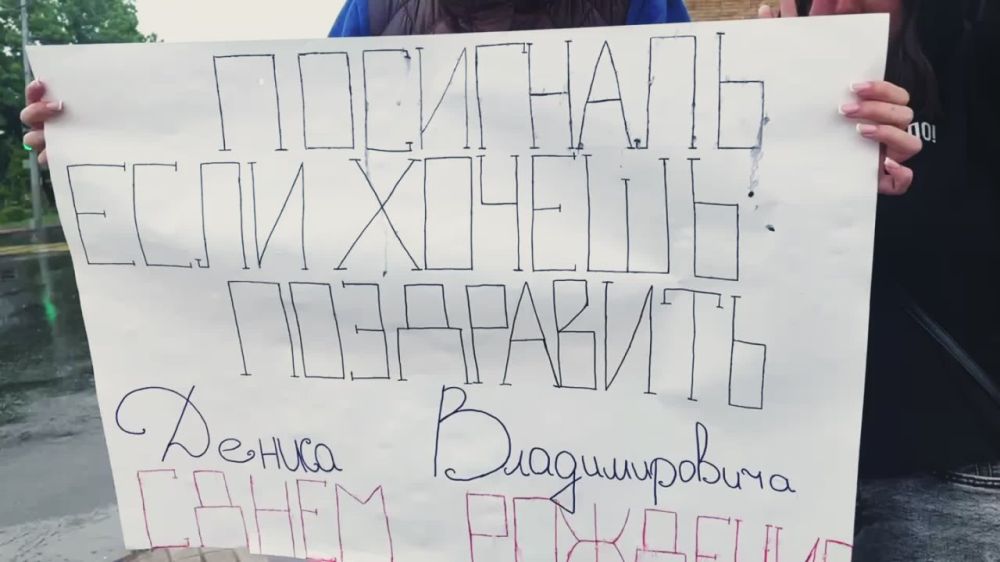 ПОСИГНАЛЬ
ЕСЛИ ХОЧЕШЬ
ПОЗДРАВИТЬ
Дениса Владимировича
С ДНЕМ РОЖДЕНИЯ
ПО!